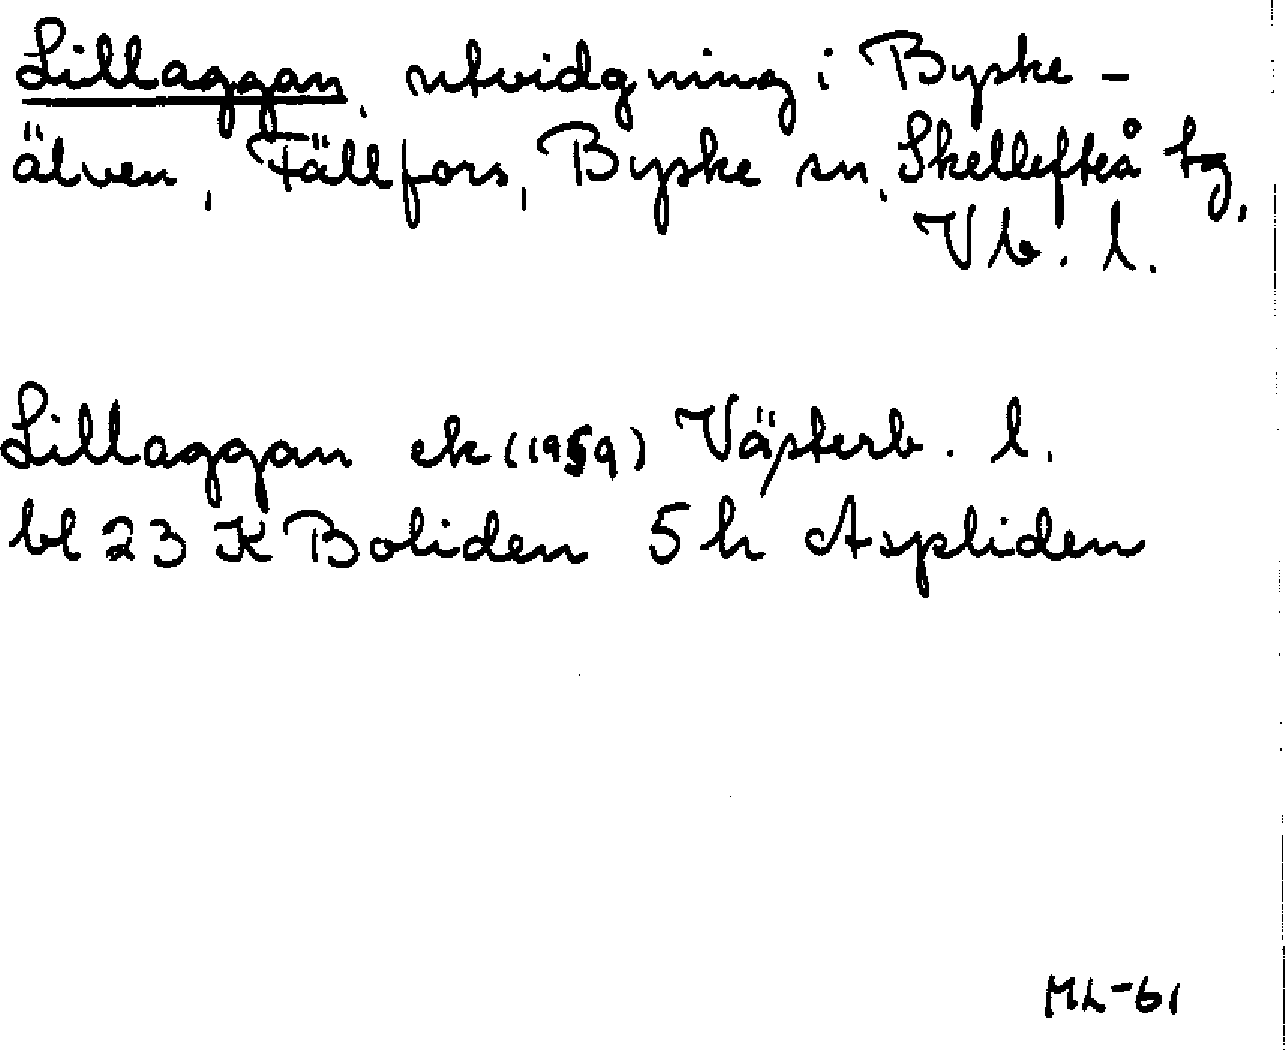 Lillaggan, utvidgning i Byske-
älven, Fällfors, Byske sn, Skellefteå tg,
Vb. l.
Lillaggan ek (1959) Västerb. l.
bl 23 K Boliden 5 h Aspliden
ML-61